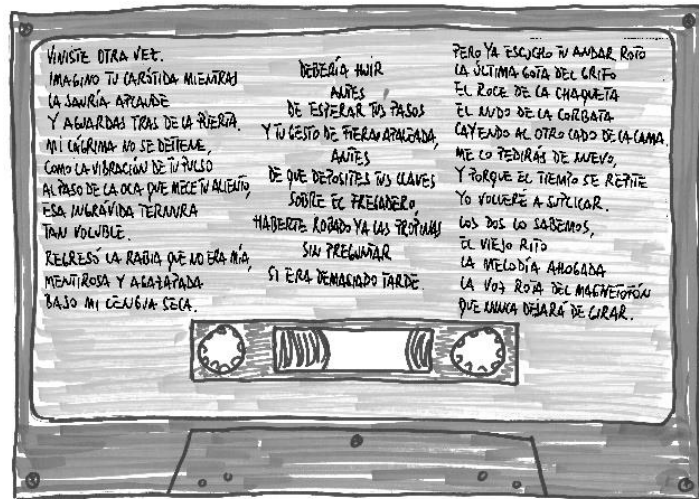 VINISTE OTRA VEZ.
IMAGINO TU CARÓTIDA MIENTRAS
LA SANGRÍA APLAUDE
Y AGUARDAS TRAS DE LA PUERTA.
MI LÁGRIMA NO SE DETIENE,
COMO LA VIBRACIÓN DE TU PULSO
AL PASO DE LA OCA QUE MECE TU ALIENTO,
ESA INGRÁVIDA TERNURA
TAN VOLUBLE.
REGRESÓ LA RABIA QUE NO ERA MÍA,
MENTIROSA Y AGAZAPADA
BAJO MI LENGUA SECA.
DEBERÍA HUIR
ANTES
DE ESPERAR TUS PASOS
Y TU GESTO DE FIERA APALEADA,
ANTES
DE QUE DEPOSITES TUS LLAVES
SOBRE EL FREGADERO,
HABERTE ROBADO YA LAS PROPINAS
SIN PREGUNTAR
SI ERA DEMASIADO TARDE.
PERO YA ESCUCHO TU ANDAR ROTO
LA ÚLTIMA GOTA DEL GRIFO
EL ROCE DE LA CHAQUETA
EL NUDO DE LA CORBATA
CAYENDO AL OTRO LADO DE LA CAMA.
ME LO PEDIRÁS DE NUEVO,
Y PORQUE EL TIEMPO SE REPITE
YO VOLVERÉ A SUPLICAR.
LOS DOS LO SABEMOS,
EL VIEJO RITO
LA MELODÍA AHOGADA
LA VOZ ROTA DEL MAGNETOFÓN
QUE NUNCA DEJARÁ DE GIRAR.